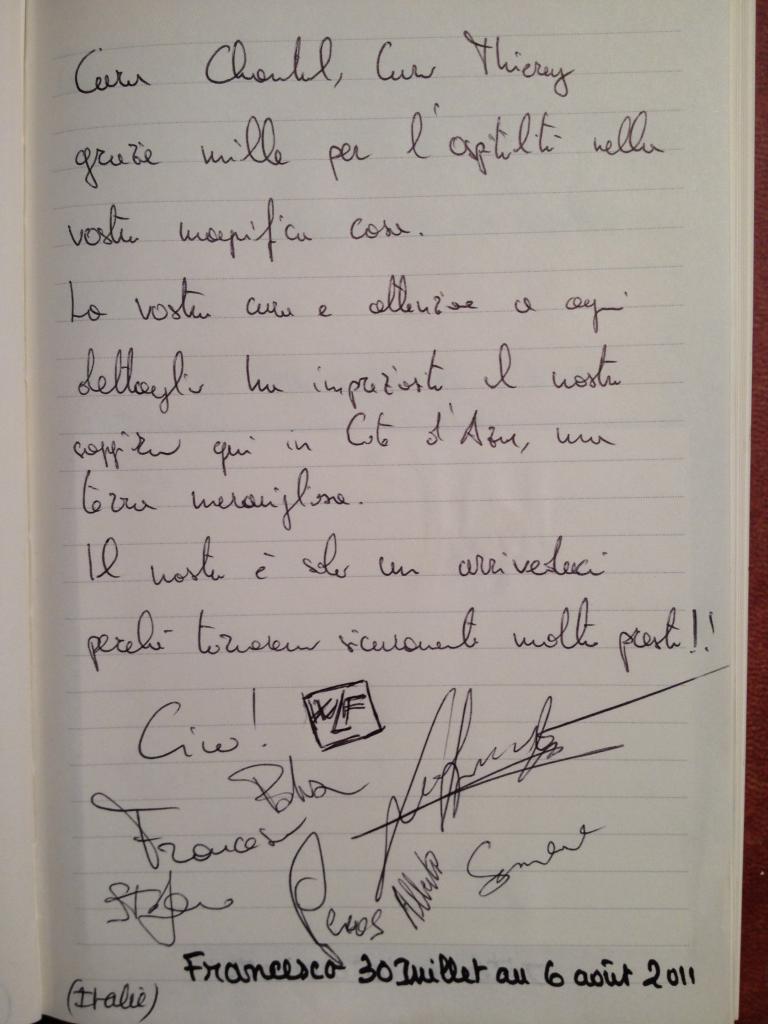 Cara Chantal, Caro Thierry
grazie mille per l'ospitalità nella
vostra magnifica casa.
La vostra cura e attenzione a ogni
dettaglio ha impreziosito il nostro
soggiorno qui in Côte d'Azur, una
terra meravigliosa.
Il nostro è solo un arrivederci
perchè torneremo sicuramente molto presto!!
Ciao!
Francesco
Stefano
Alberto
Simone
Francesco 30 Juillet au 6 août 2011
(Italie)